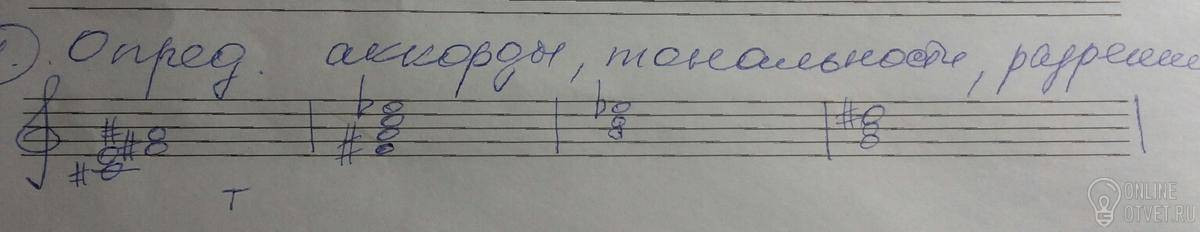 1). Опред. аккорды, тональности, разреши
Т
ONLINE
OTVET.RU